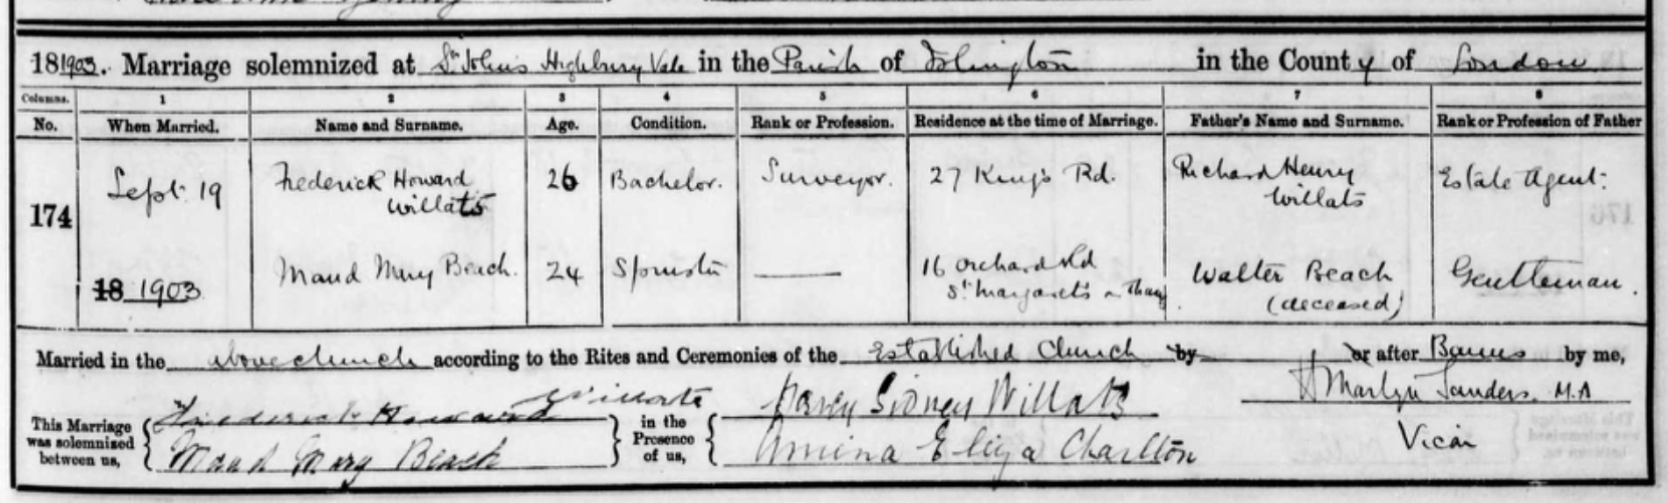 181903. Marriage solemnized at St John's Highbury Vale in the Parish of Islington in the County of London
Columns. 1 2 3 4 5 6 7 8
No. When Married. Name and Surname. Age. Condition. Rank or Profession. Residence at the time of Marriage. Father's Name and Surname. Rank or Profession of Father
174
Sept 19 Frederick Howard 26 Bachelor. Surveyor. 27 King's Rd. Richard Henry Estate Agent.
Willats Willats
18 1903 Maud Mary Beach. 24 Spinster — 16 Orchard Rd Walter Beach Gentleman.
St Margaret's on Thames (deceased)
Married in the above church according to the Rites and Ceremonies of the Established Church by or after Banns by me,
This Marriage was solemnized between us, Frederick Howard Willats in the Presence of us, Sidney Willats Marlyn Sanders, M.A
Maud Mary Beach Amina Eliza Charlton Vicar